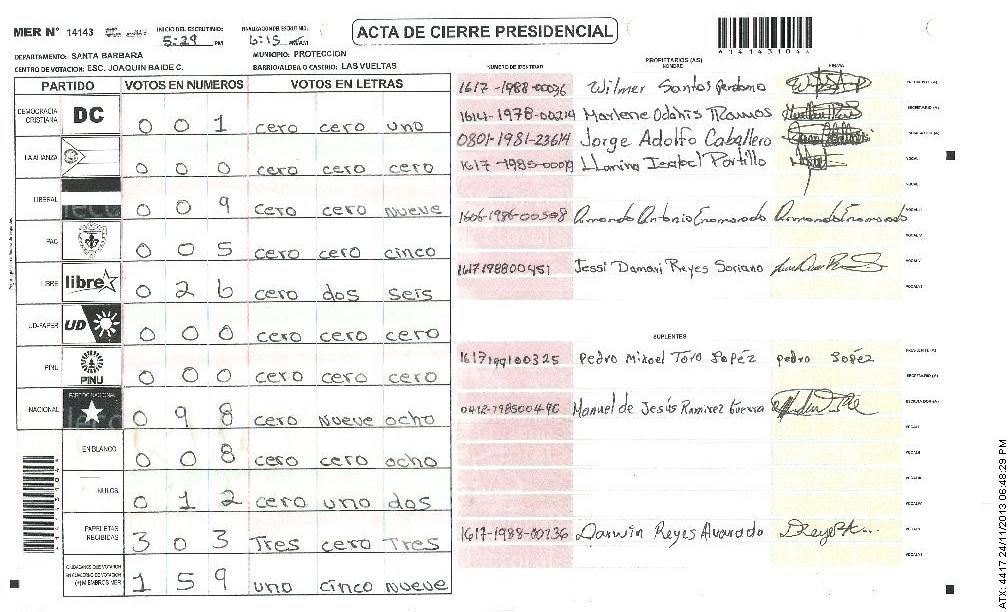 MER N° 14143
INICIO DEL ESCRUTINIO: 5:29 PM
FINALIZACION DE ESCRUTINIO: 6:15
ACTA DE CIERRE PRESIDENCIAL
14143104
DEPARTAMENTO: SANTA BARBARA
MUNICIPIO: PROTECCION
CENTRO DE VOTACION: ESC. JOAQUIN BAIDE C.
BARRIO/ALDEA O CASERIO: LAS VUELTAS
PARTIDO VOTOS EN NUMEROS VOTOS EN LETRAS
DEMOCRACIA CRISTIANA DC 0 0 1 cero cero uno
LA ALIANZA 0 0 0 cero cero cero
LIBERAL 0 0 9 cero cero nueve
PAC 0 0 5 cero cero cinco
LIBRE libre 0 2 6 cero dos seis
UD-FAPER UD 0 0 0 cero cero cero
PINU PINU 0 0 0 cero cero cero
NACIONAL PARTIDO NACIONAL 0 9 8 cero nueve ocho
EN BLANCO 0 0 8 cero cero ocho
NULOS 0 1 2 cero uno dos
PAPELETAS RECIBIDAS 3 0 3 Tres cero Tres
CIUDADANOS QUE VOTARON EN CUADERNO DE VOTACION (+) MIEMBROS MER 1 5 9 uno cinco nueve
NUMERO DE IDENTIDAD PROPIETARIOS (AS) NOMBRE FIRMA
1617-1988-00036 Wilmer Santos Perdomo
1614-1978-00214 Marlene Odanis Ramos
0801-1981-23614 Jorge Adolfo Caballero
1617-1985-00019 Isabel Portillo
1606-1986-00508 Armando Antonio Enamorado Armando Enamorado
1617198800451 Jessi Damari Reyes Soriano
SUPLENTES
1617199100325 Pedro Mikael Toro Sopéz pedro Sopéz
0412-198500496 Manuel de Jesús Ramirez Guerra
1617-1988-00736 Darwin Reyes Alvarado
ATX: 4417 24/11/2013 06:48:29 PM